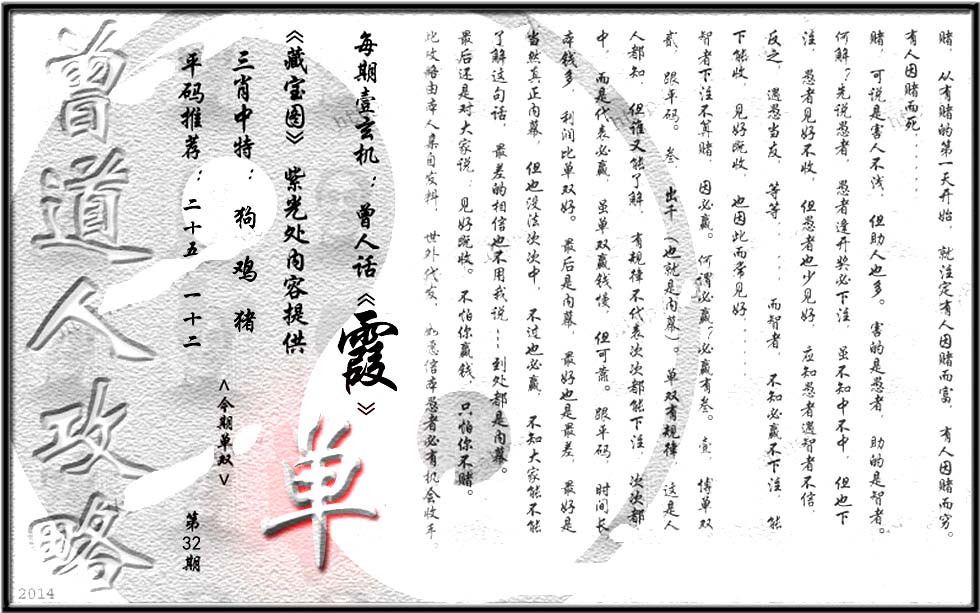 赌，从有赌的第一天开始，就注定有人因赌而富，有人因赌而穷。
有人因赌而死......
赌，可说是害人不浅，但助人也多。害的是愚者，助的是智者。
何解？先说愚者，愚者逢开奖必下注，虽不知中不中，但也下
注，愚者见好不收，但愚者也少见好，应知愚者遇智者不信，
反之，遇愚当友，等等......而智者，不知必赢不下注，能
下能收，见好既收，也因此而常见好......
智者下注不算赌，因必赢。何谓必赢？必赢有叁。壹，博单双，
贰，跟平码。叁，出千（也就是内幕）。单双有规律，这是人
人都知，但谁又能了解，有规律不代表次次都能下注，次次都
中，而是代表必赢，虽单双赢钱慢，但可靠。跟平码，时间长，
本钱多，利润比单双好。最后是内幕，最好也是最差，最好是
当然真正内幕，但也没法次次中，不过也必赢，不知大家能不能
了解这句话，最差的相信也不用我说……到处都是内幕。
最后还是对大家说：见好既收。不怕你赢钱，只怕你不赌。
此攻略由本人集自发料，世外代友，如愿信本愚者必有机会收车。
每期壹玄机：曾人话《霞》
《藏宝图》紫光处内容提供
三肖中特：狗鸡猪
平码推荐：二十五 一十二
<今期单双>
单
第32期
曾道人攻略
2014